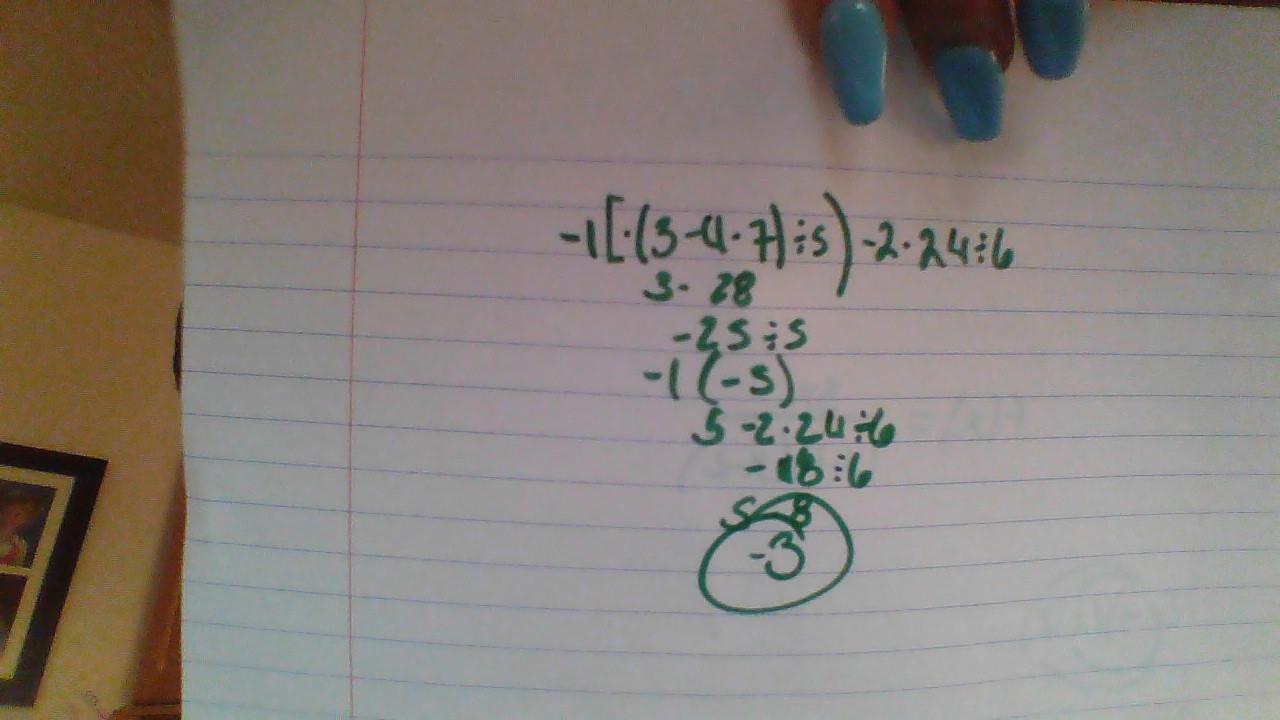 -1[·(3-4·7)÷5)-2·24÷6
3- 28
-25÷5
-1(-5)
5-2·24÷6
-48÷6
5-8
-3